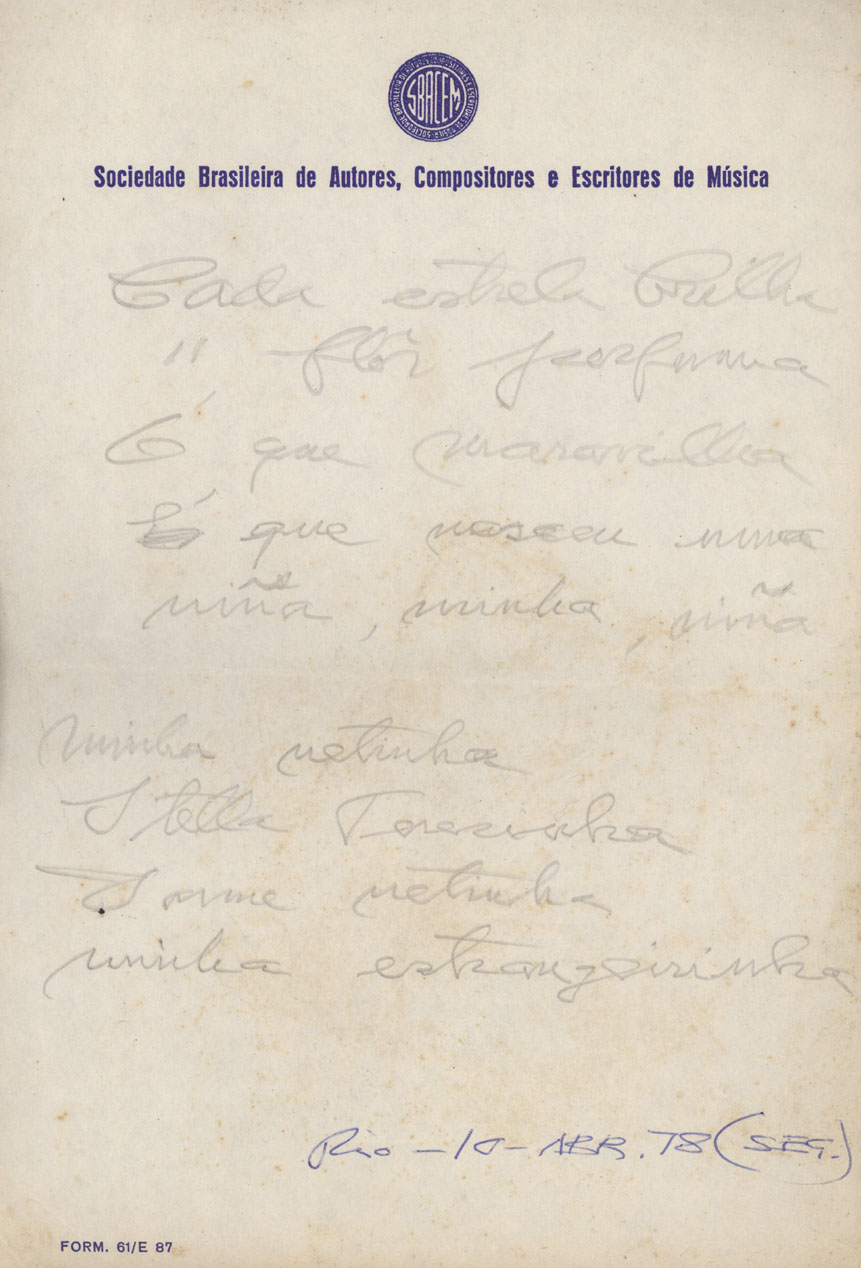 SBACEM
Sociedade Brasileira de Autores, Compositores e Escritores de Música
Cada estrela brilha
" flôr perfuma
É que maravilha
É que nasceu uma
niña, minha, niña
Minha netinha
Stella Teresinha
Dorme netinha
minha estrangeirinha
Rio - 10 - ABR. 78 (SEG.)
FORM. 61/E 87